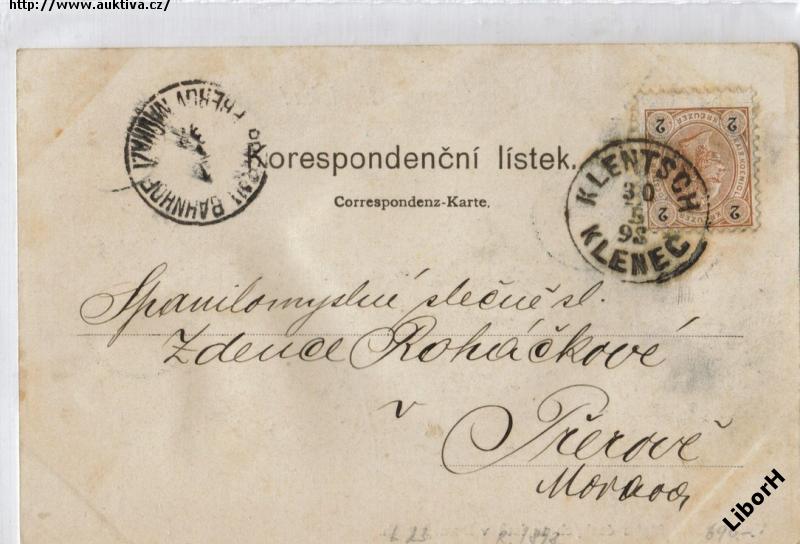 http://www.auktiva.cz/
BAHNHOF
Korespondenční lístek.
Correspondenz-Karte.
2 KREUZER 2
2 2
KLENTSCH
30
5
98
KLENEČ
Spanilomyslné slečně sl.
Zdence Roháčkové
v
Přerově
Morava
LiborH